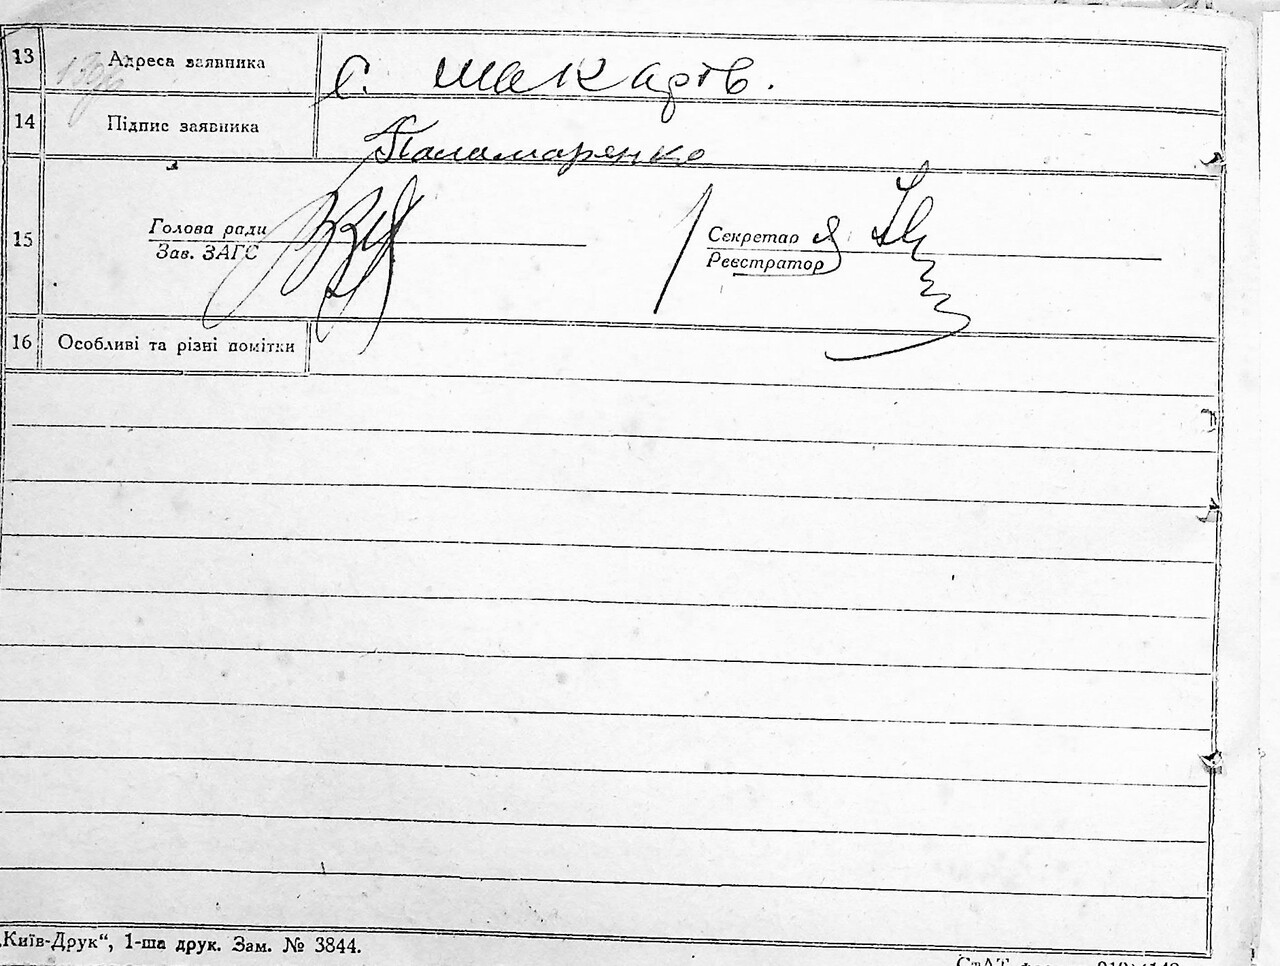 13 Адреса заявника с. Макарів.
14 Підпис заявника Паламаренко
15 Голова ради Секретар
Зав. ЗАГС Реєстратор
16 Особливі та різні помітки
„Київ-Друк“, 1-ша друк. Зам. № 3844.